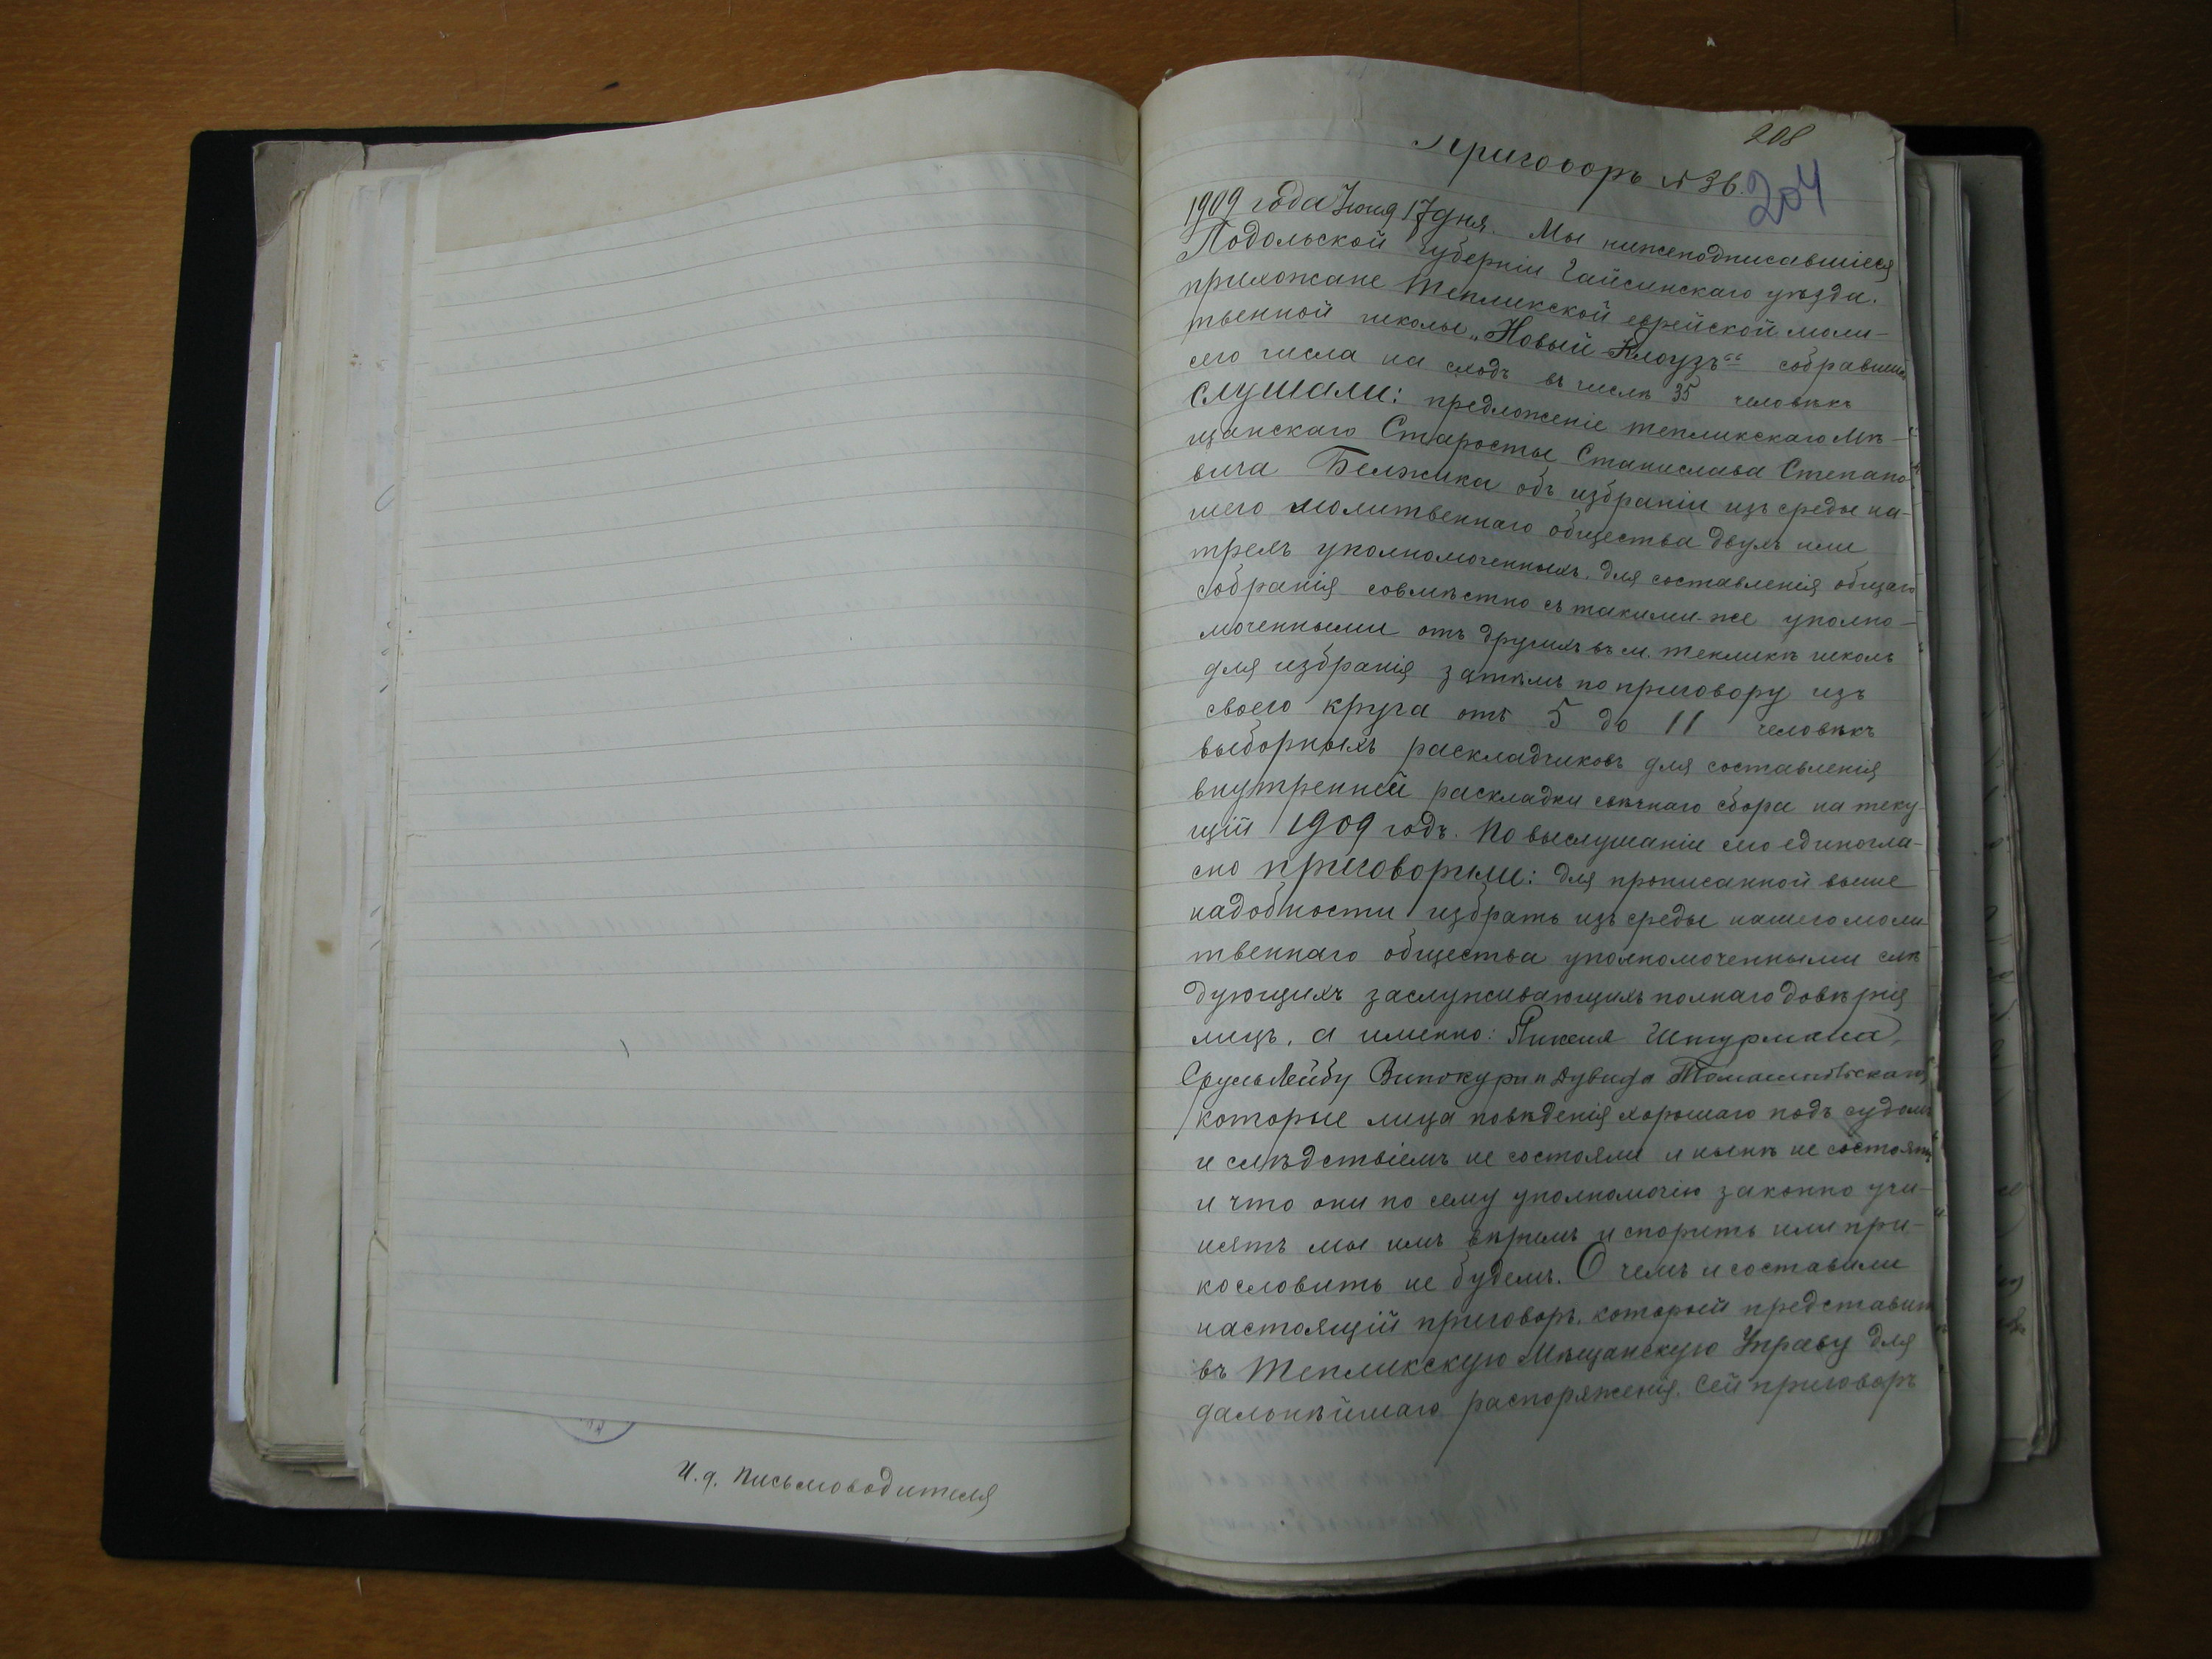 И. д. Письмоводителя
208
Приговоръ № 36.
204
1909 года Іюня 17 дня. Мы нижеподписавшіеся
Подольской губерніи Гайсинскаго уѣзда.
прихожане Тепликской еврейской моли-
твенной школы „Новый Клоузъ“ собравшись
сего числа на сходъ въ числѣ 35 человѣкъ
слушали: предложеніе тепликскаго Мѣ-
щанскаго Старосты Станислава Степано-
вича Бельжика объ избраніи изъ среды на-
шего молитвеннаго общества двухъ или
трехъ уполномоченныхъ, для составленія общаго
собранія совмѣстно съ такими-же уполно-
моченными отъ другихъ въ м. Тепликѣ школъ
для избранія затѣмъ по приговору изъ
своего круга отъ 5 до 11 человѣкъ
выборныхъ раскладчиковъ для составленія
внутренней раскладки свѣчнаго сбора на теку-
щій 1909 годъ. По выслушаніи сего единогла-
сно приговорили: для прописанной выше
надобности избрать изъ среды нашего моли-
твеннаго общества уполномоченными слѣ
дующихъ заслуживающихъ полнаго довѣрія
лицъ, а именно: Штурмана,
Сруль Лейбу Винокура и Дувида Томашпольскаго
которые лица поведѣнія хорошаго подъ судомъ
и слѣдствіемъ не состояли и нынѣ не состоятъ
и что они по сему уполномочію законно учи-
нятъ мы имъ вѣримъ и спорить или пре-
кословить не будемъ. О чемъ и составили
настоящій приговоръ, который представить
въ Тепликскую Мѣщанскую Управу для
дальнѣйшаго распоряженія. Сей приговоръ